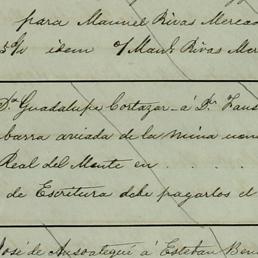 para Manuel Rivas Mercad
idem o/ Man.l Rivas Mer
D.a Guadalupe Cortazar á D.n Faus
barra aviada de la mina
Real del Monte en . . . .
de Escritura debe pagarlos el
José de Ansoategui á Esteban Ben